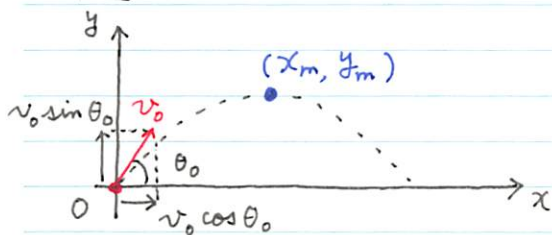 y
(x_m, y_m)
v_0 sin θ_0
v_0
θ_0
O
v_0 cos θ_0
x